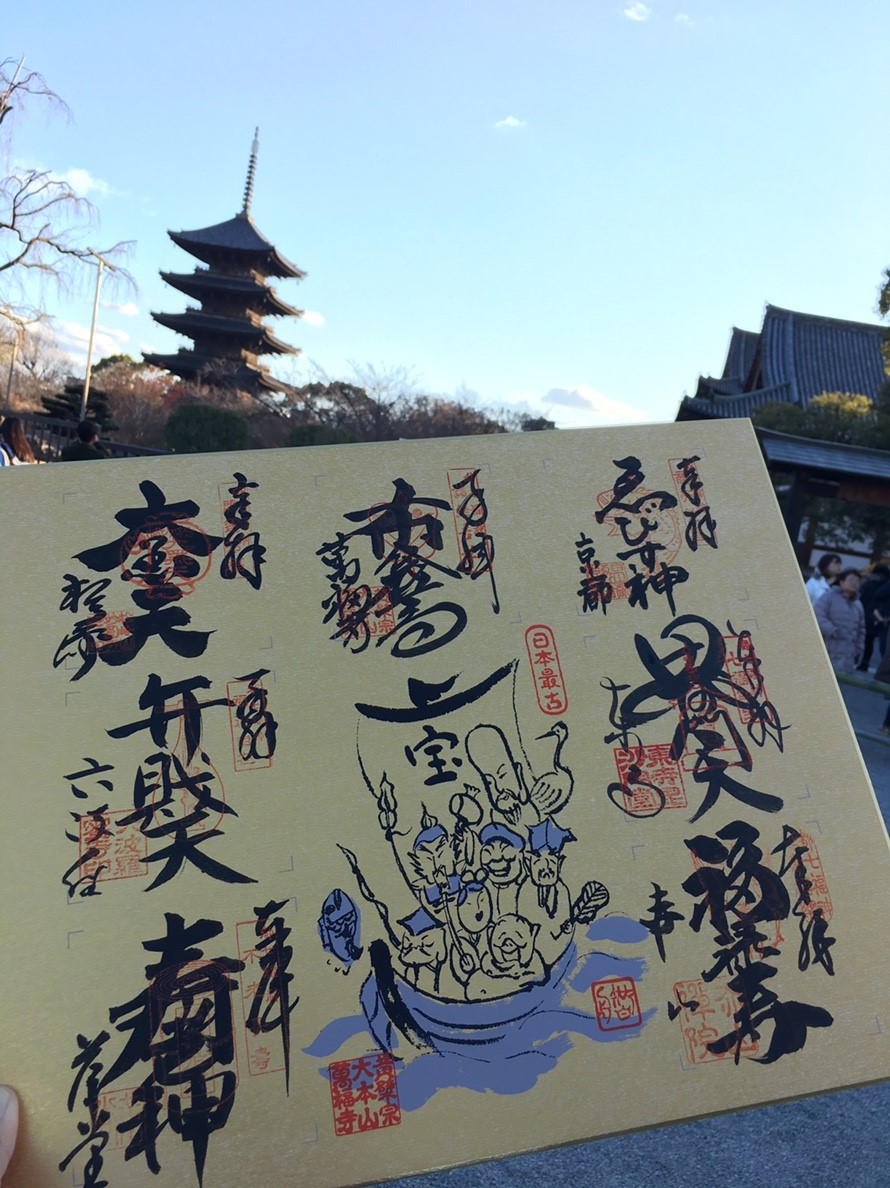 奉拝
ゑびす神
京都
奉拝
毘沙門天
東寺
奉拝
福禄寿
赤山
奉拝
布袋尊
萬福寺
日本最古
宝
黄檗宗
大本山
萬福寺
奉拝
大黒天
松ヶ崎
奉拝
弁財天
奉拝
寿老神
革堂